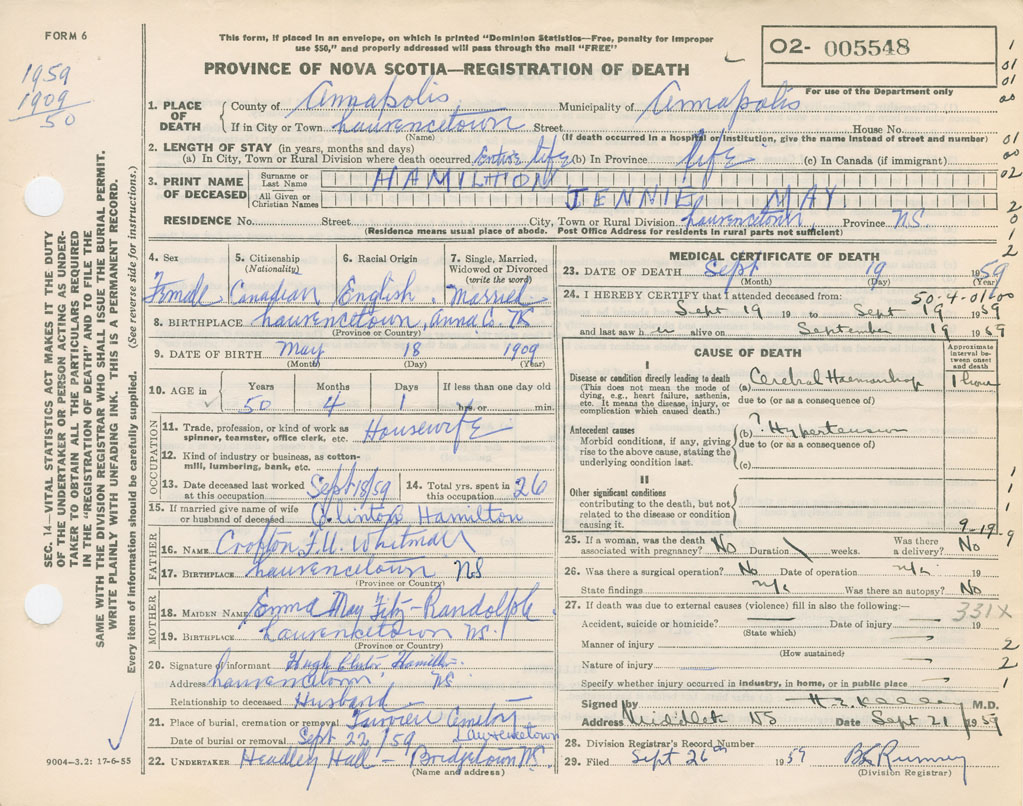 FORM 6
This form, if placed in an envelope, on which is printed "Dominion Statistics—Free, penalty for improper
use $50," and properly addressed will pass through the mail "FREE"
O2- 005548
For use of the Department only
1959
1909
50
PROVINCE OF NOVA SCOTIA—REGISTRATION OF DEATH
1. PLACE OF DEATH County of Annapolis Municipality of Annapolis
If in City or Town Lawrencetown Street House No.
(Name) (If death occurred in a hospital or institution, give the name instead of street and number)
2. LENGTH OF STAY (in years, months and days)
(a) In City, Town or Rural Division where death occurred Entire life (b) In Province life (c) In Canada (if immigrant)
3. PRINT NAME OF DECEASED Surname or Last Name HAMILTON
All Given or Christian Names JENNIE MAY
RESIDENCE No. Street City, Town or Rural Division Lawrencetown Province N.S.
(Residence means usual place of abode. Post Office Address for residents in rural parts not sufficient)
SEC. 14—VITAL STATISTICS ACT MAKES IT THE DUTY
OF THE UNDERTAKER OR PERSON ACTING AS UNDER-
TAKER TO OBTAIN ALL THE PARTICULARS REQUIRED
IN THE "REGISTRATION OF DEATH" AND TO FILE THE
SAME WITH THE DIVISION REGISTRAR WHO SHALL ISSUE THE BURIAL PERMIT.
WRITE PLAINLY WITH UNFADING INK. THIS IS A PERMANENT RECORD.
Every item of information should be carefully supplied. (See reverse side for instructions.)
4. Sex Female
5. Citizenship (Nationality) Canadian
6. Racial Origin English
7. Single, Married, Widowed or Divorced (write the word) Married
8. BIRTHPLACE Lawrencetown, Anna. Co. NS
(Province or Country)
9. DATE OF BIRTH May 18 1909
(Month) (Day) (Year)
10. AGE in Years Months Days If less than one day old
50 4 1 hrs. or min.
OCCUPATION
11. Trade, profession, or kind of work as spinner, teamster, office clerk, etc. Housewife
12. Kind of industry or business, as cotton-mill, lumbering, bank, etc.
13. Date deceased last worked at this occupation Sept 18/59
14. Total yrs. spent in this occupation 26
15. If married give name of wife or husband of deceased Clinton Hamilton
FATHER
16. NAME Crofton F.U. Whitman
17. BIRTHPLACE Lawrencetown NS
(Province or Country)
MOTHER
18. MAIDEN NAME Emma May Fitz-Randolph
19. BIRTHPLACE Lawrencetown NS.
(Province or Country)
20. Signature of informant Hugh Hamilton
Address Lawrencetown, NS
Relationship to deceased Husband
21. Place of burial, cremation or removal Fairview Cemetery
Lawrencetown
Date of burial or removal Sept 22/59
22. UNDERTAKER Headley Hall - Bridgetown NS.
(Name and address)
9004—3.2: 17-6-55
MEDICAL CERTIFICATE OF DEATH
23. DATE OF DEATH Sept 19 1959
(Month) (Day) (Year)
50-4-01-00
24. I HEREBY CERTIFY that I attended deceased from:
Sept 19 19 to Sept 19 1959
and last saw h er alive on September 19 1959
CAUSE OF DEATH
Approximate interval between onset and death
I
Disease or condition directly leading to death
(This does not mean the mode of dying, e.g., heart failure, asthenia, etc. It means the disease, injury, or complication which caused death.)
(a) Cerebral Haemorrhage 1 hour
due to (or as a consequence of)
Antecedent causes
Morbid conditions, if any, giving rise to the above cause, stating the underlying condition last.
(b) ? Hypertension
due to (or as a consequence of)
(c)
II
Other significant conditions
contributing to the death, but not related to the disease or condition causing it.
9-19
25. If a woman, was the death associated with pregnancy? No Duration weeks. Was there a delivery? No
26. Was there a surgical operation? No Date of operation
State findings Was there an autopsy? No
27. If death was due to external causes (violence) fill in also the following:—
331X
Accident, suicide or homicide? Date of injury 19
(State which)
Manner of injury
(How sustained)
Nature of injury
Specify whether injury occurred in industry, in home, or in public place
Signed by M.D.
Address Middleton NS Date Sept 21 1959
28. Division Registrar's Record Number
29. Filed Sept 26th 1959
(Division Registrar)